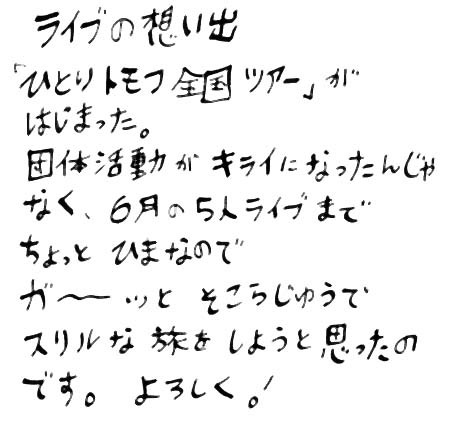 ライブの想い出
「ひとりトモフ全国ツアー」が
はじまった。
団体活動がキライになったんじゃ
なく、6月の5人ライブまで
ちょっとひまなので
ガ〜〜ッと そこらじゅうで
スリルな旅をしようと思ったの
です。よろしく。!